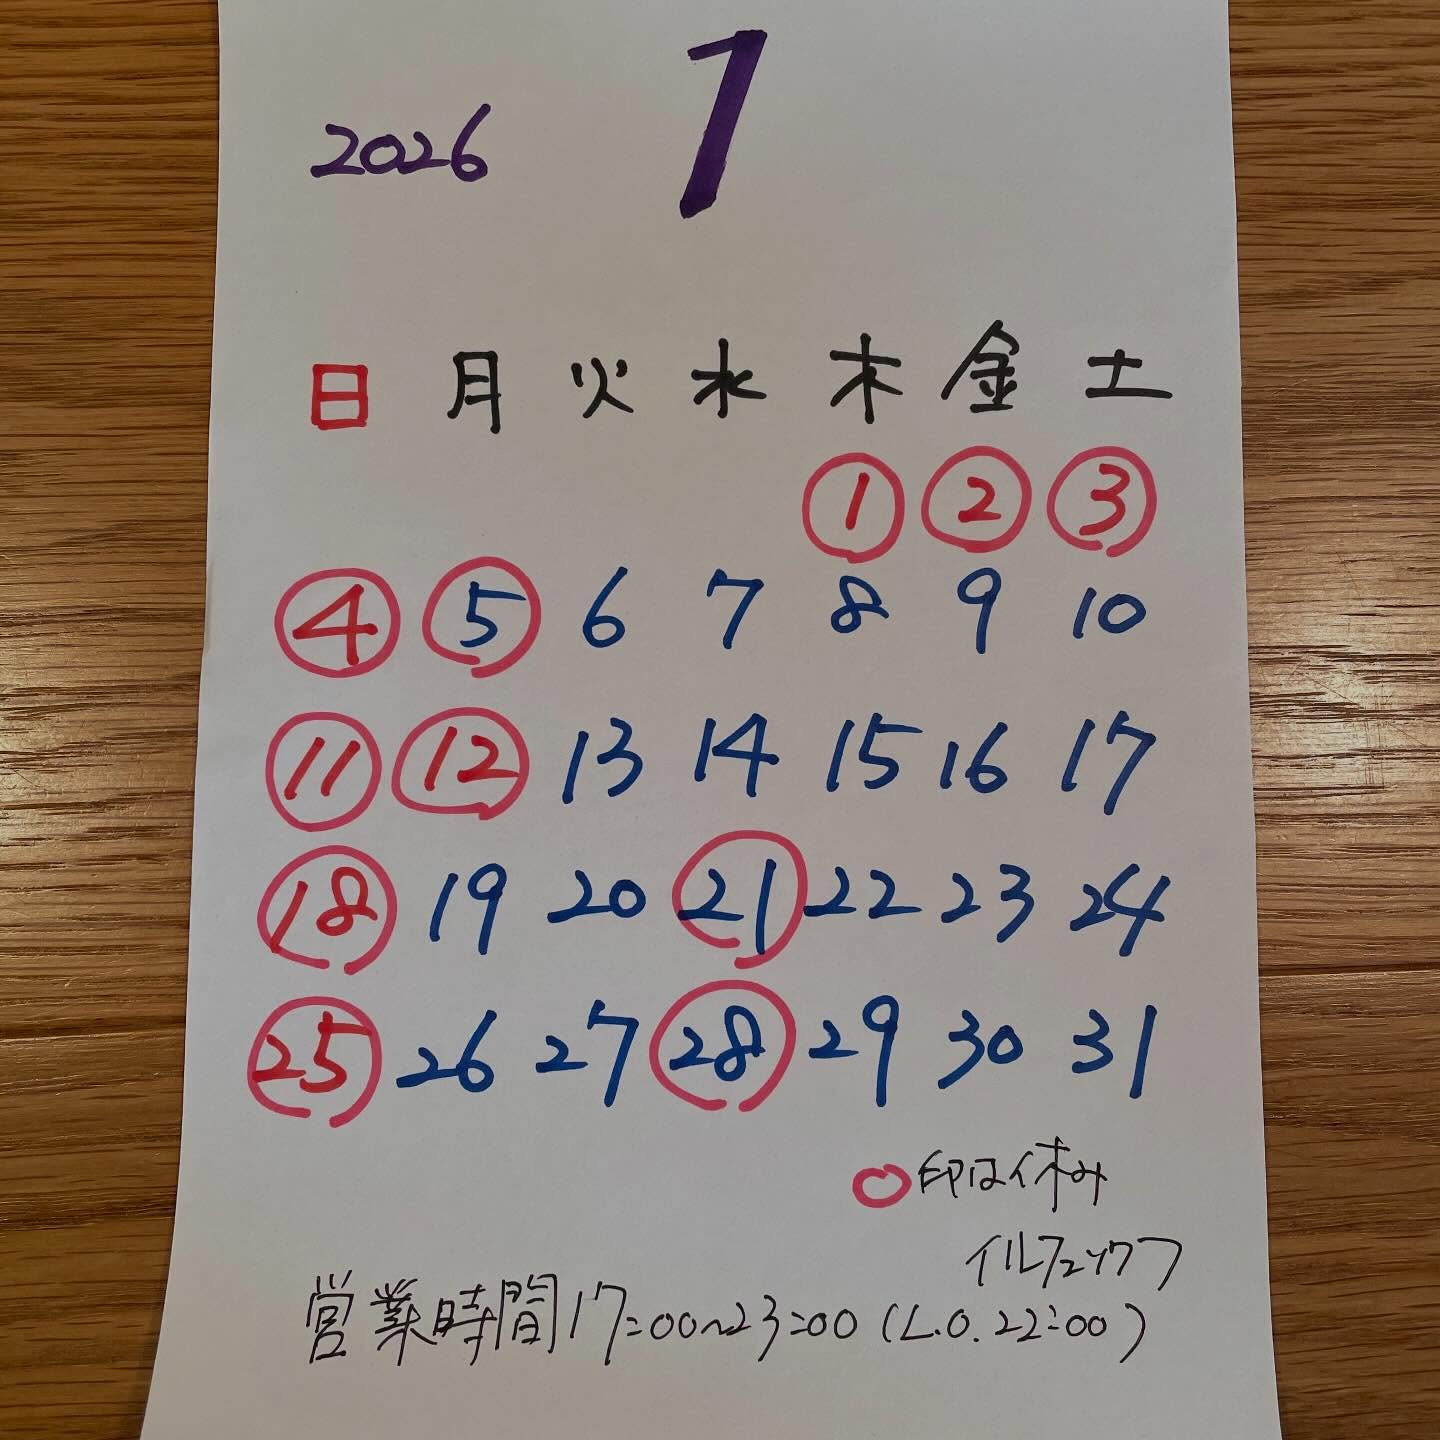 1
2026
日 月 火 水 木 金 土
1 2 3
4 5 6 7 8 9 10
11 12 13 14 15 16 17
18 19 20 21 22 23 24
25 26 27 28 29 30 31
○印は休み
営業時間17:00~23:00(L.O.22:00)